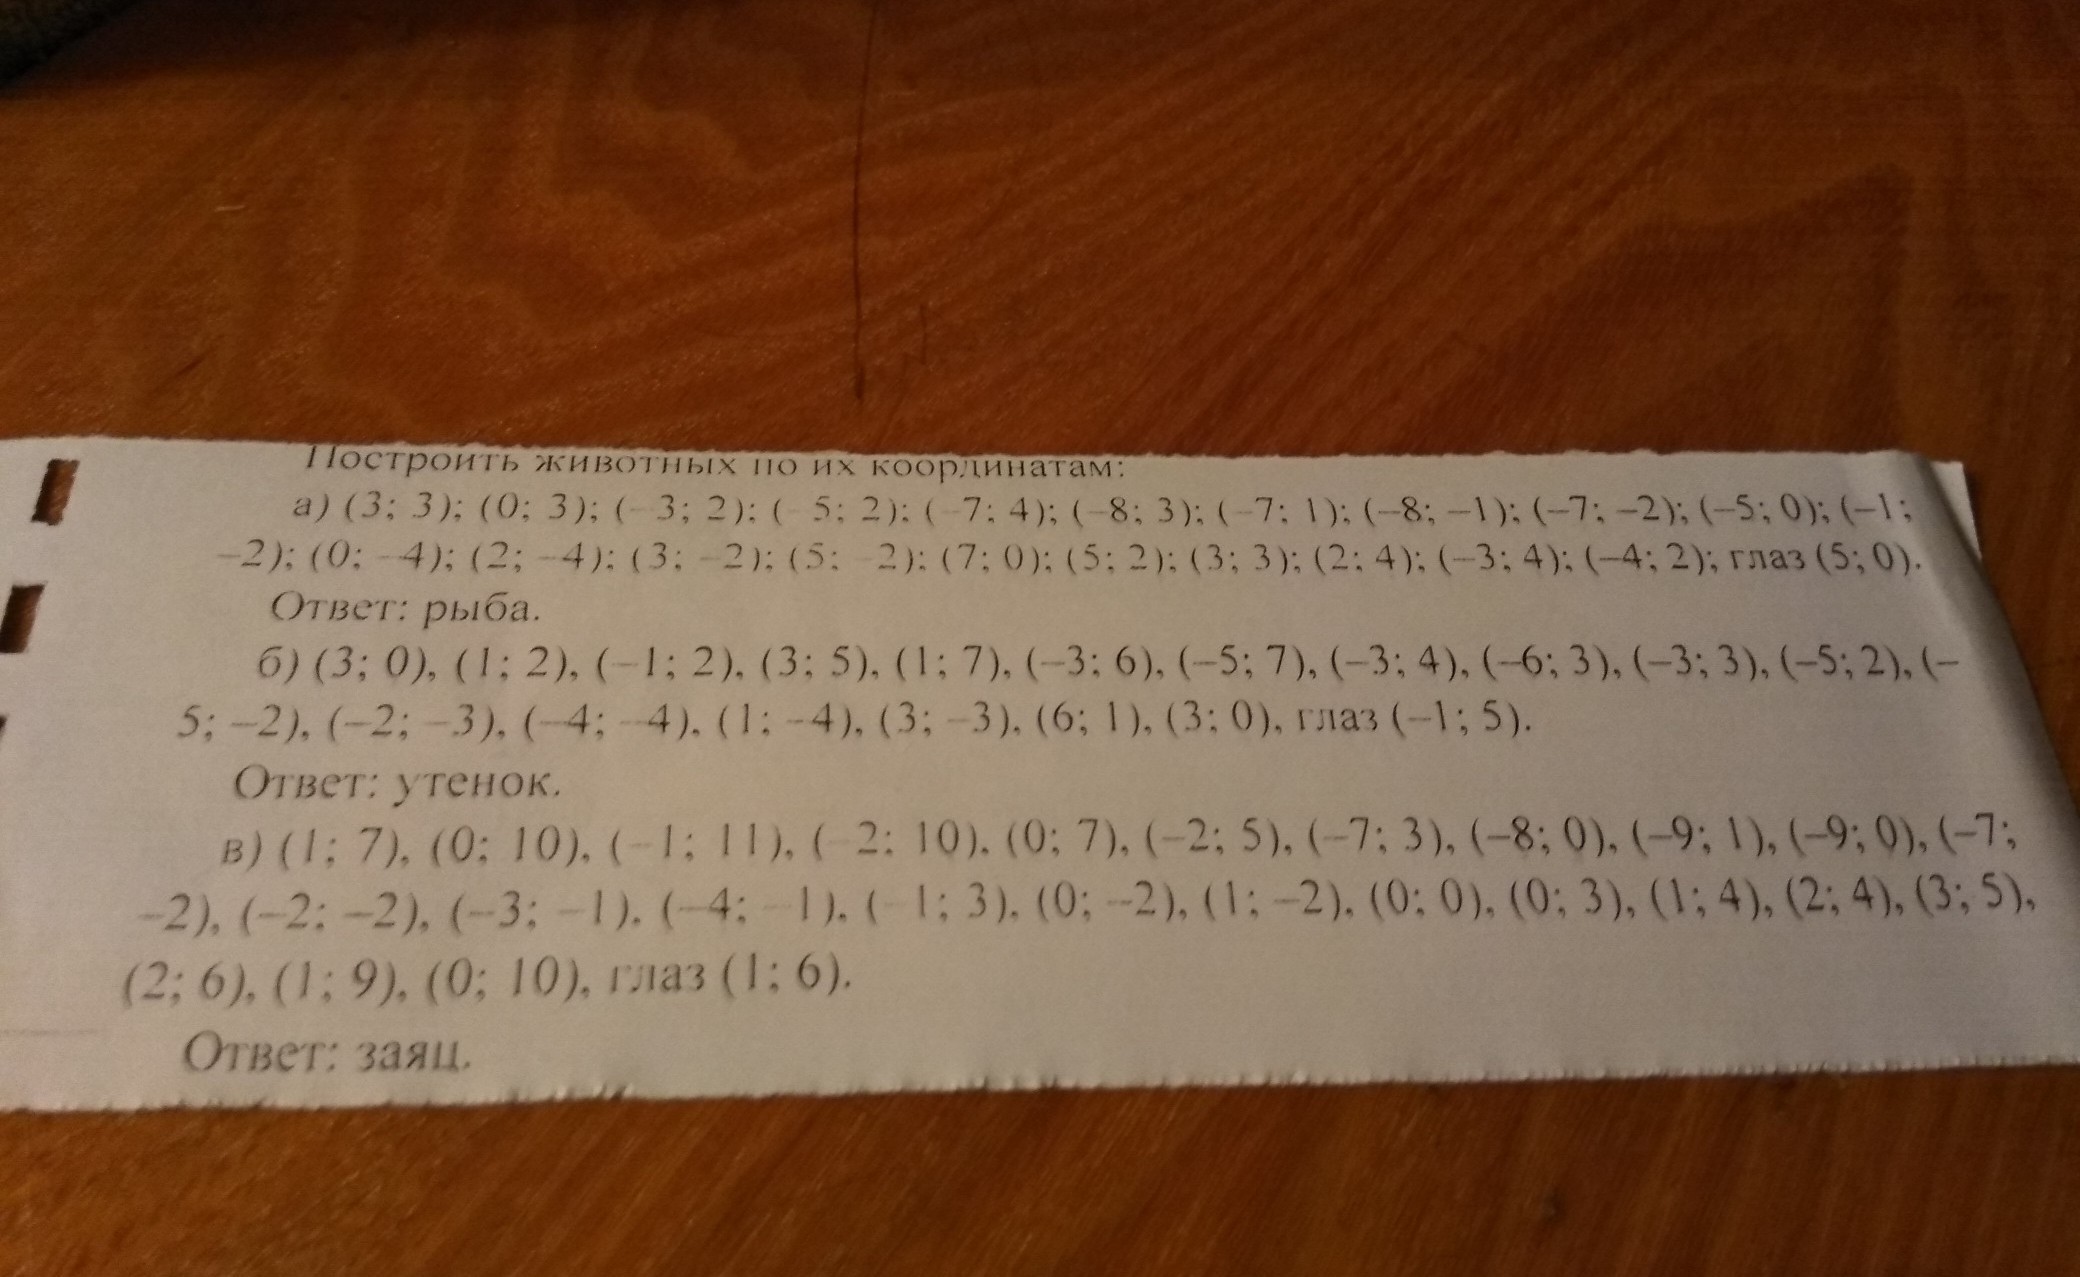 Построить животных по их координатам:
а) (3; 3); (0; 3); (–3; 2); (–5; 2); (–7; 4); (–8; 3); (–7; 1); (–8; –1); (–7; –2); (–5; 0); (–1;
–2); (0; –4); (2; –4); (3; –2); (5; –2); (7; 0); (5; 2); (3; 3); (2; 4); (–3; 4); (–4; 2); глаз (5; 0).
Ответ: рыба.
б) (3; 0), (1; 2), (–1; 2), (3; 5), (1; 7), (–3; 6), (–5; 7), (–3; 4), (–6; 3), (–3; 3), (–5; 2), (–
5; –2), (–2; –3), (–4; –4), (1; –4), (3; –3), (6; 1), (3; 0), глаз (–1; 5).
Ответ: утенок.
в) (1; 7), (0; 10), (–1; 11), (–2; 10), (0; 7), (–2; 5), (–7; 3), (–8; 0), (–9; 1), (–9; 0), (–7;
–2), (–2; –2), (–3; –1), (–4; –1), (–1; 3), (0; –2), (1; –2), (0; 0), (0; 3), (1; 4), (2; 4), (3; 5),
(2; 6), (1; 9), (0; 10), глаз (1; 6).
Ответ: заяц.